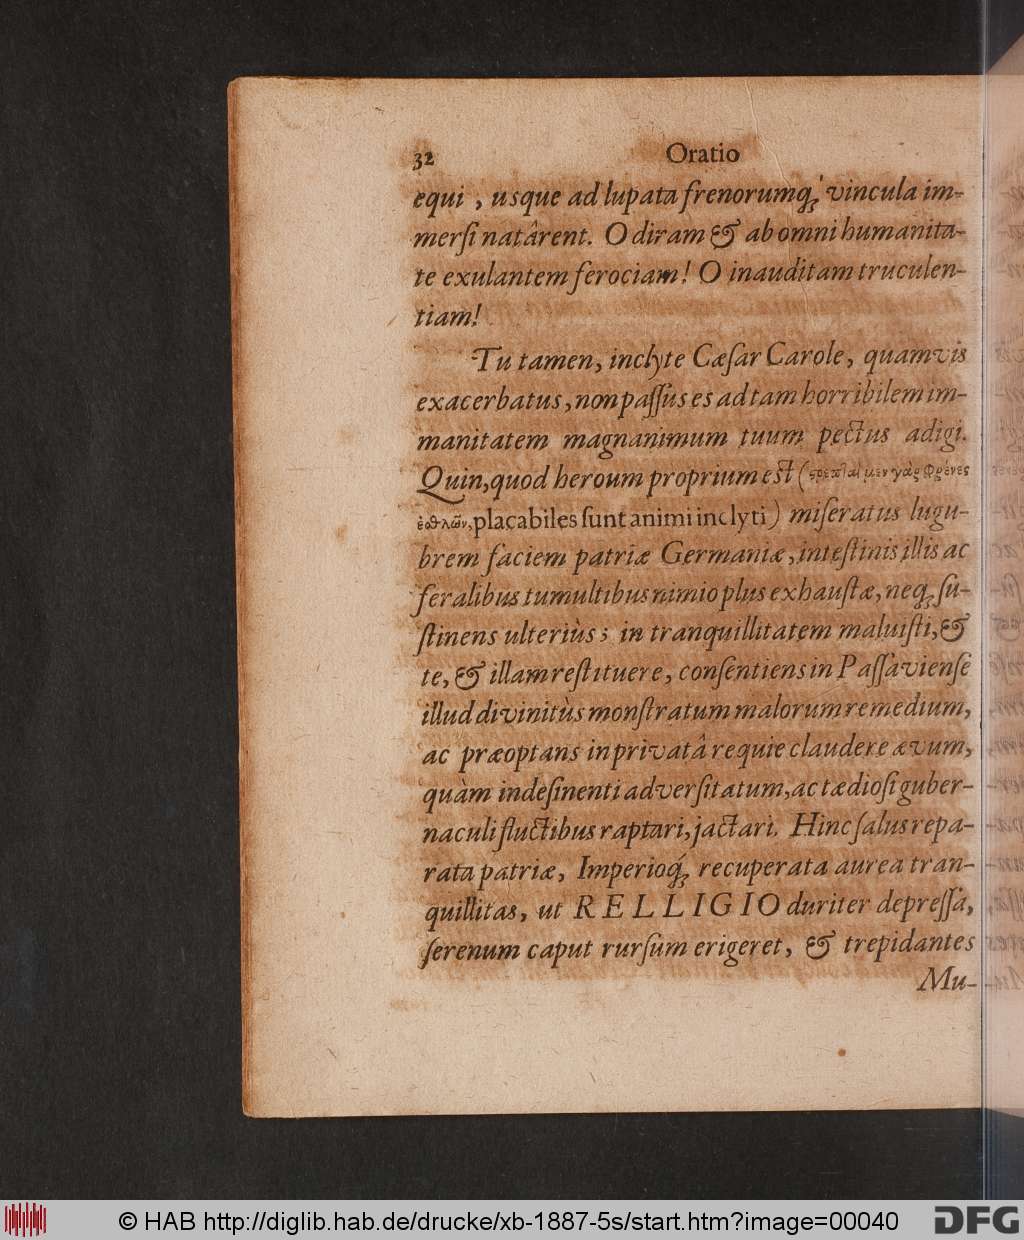 32 Oratio
equi, usque ad lupata frenorumq́; vincula im-
merſi natârent. O diram & ab omni humanita-
te exulantem ferociam! O inauditam truculen-
tiam!
Tu tamen, inclyte Cæſar Carole, quamvis
exacerbatus, non paſſus es ad tam horribilem im-
manitatem magnanimum tuum pectus adigi.
Quin, quod heroum proprium est (ϛρεπλαὶ μεν γὰρ φρένες
ἐσθλῶν, placabiles ſunt animi inclyti) miſeratus lugu-
brem faciem patriæ Germaniæ, inteſtinis illis ac
feralibus tumultibus nimio plus exhauſtæ, neq; ſu-
ſtinens ulteriùs; in tranquillitatem maluiſti, &
te, & illam reſtituere, conſentiens in Paſſavienſe
illud divinitùs monſtratum malorum remedium,
ac præoptans in privatâ requie claudere ævum,
quàm indeſinenti adverſitatum, ac tædioſi guber-
naculi fluctibus raptari, jactari. Hinc ſalus repa-
rata patriæ, Imperioq́; recuperata aurea tran-
quillitas, ut RELLIGIO duriter depreſſa,
ſerenum caput rurſum erigeret, & trepidantes
Mu-
© HAB http://diglib.hab.de/drucke/xb-1887-5s/start.htm?image=00040
DFG